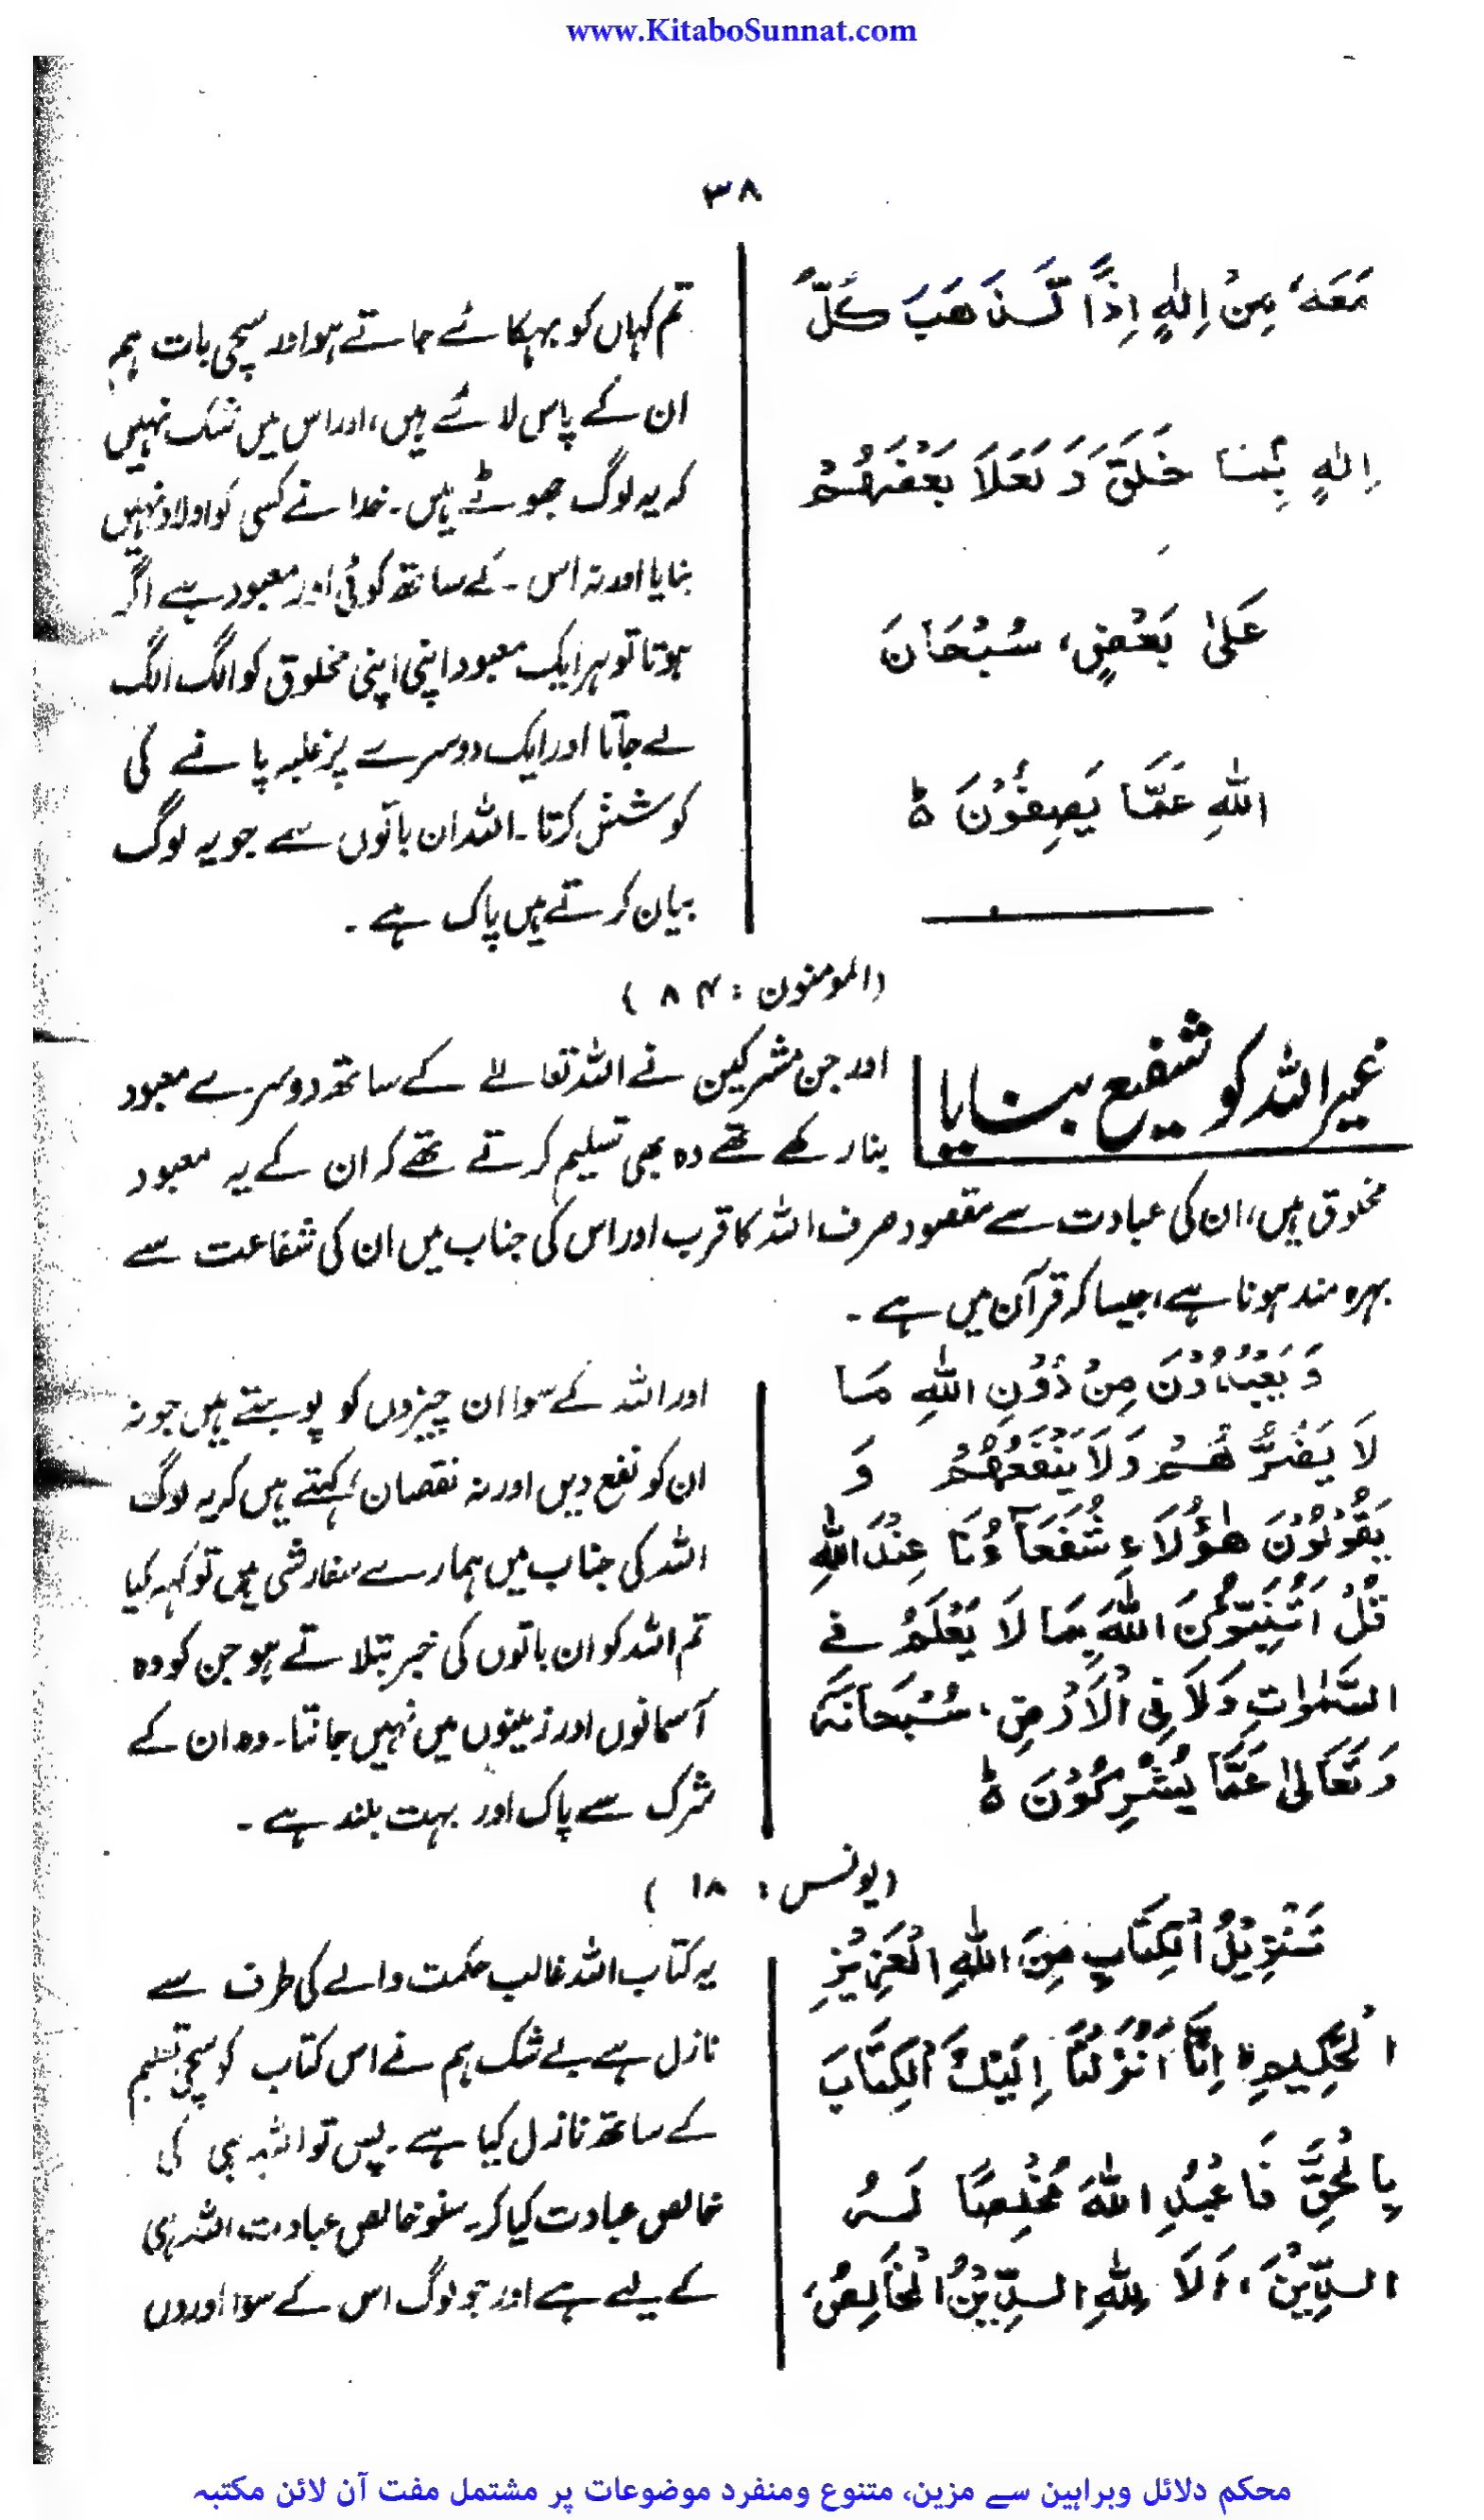 www.KitaboSunnat.com
۳۸
مَعَهٗ مِنْ اِلٰهٍ اِذًا لَّذَهَبَ كُلُّ
اِلٰهٍ بِمَا خَلَقَ وَ لَعَلَا بَعْضُهُمْ
عَلٰی بَعْضٍ، سُبْحَانَ
اللّٰهِ عَمَّا يَصِفُوْنَ ط
تم کہاں کو بہکائے جاتے ہو اور سچی بات ہم
ان کے پاس لائے ہیں، اور اس میں شک نہیں
کہ یہ لوگ جھوٹے ہیں۔ خدا نے کسی کو اولاد نہیں
بنایا اور نہ اس۔ کے ساتھ کوئی اور معبود ہے اگر
ہوتا تو ہر ایک معبود اپنی اپنی مخلوق کو الگ الگ
لے جاتا اور ایک دوسرے پر غلبہ پانے کی
کوشش کرتا۔ اللہ ان باتوں سے جو یہ لوگ
بیان کرتے ہیں پاک ہے۔
(المومنون : ۸۴)
غیراللہ کو شفیع بنایا
اور جن مشرکین نے اللہ تعالےٰ کے ساتھ دوسرے معبود
بنا رکھے تھے وہ بھی تسلیم کرتے تھے کہ ان کے یہ معبود
مخلوق ہیں، ان کی عبادت سے مقصود صرف اللہ کا قرب اور اس کی جناب میں ان کی شفاعت سے
بہرہ مند ہونا ہے، جیسا کہ قرآن میں ہے۔
وَ يَعْبُدُوْنَ مِنْ دُوْنِ اللّٰهِ مَا
لَا يَضُرُّهُمْ وَلَا يَنْفَعُهُمْ وَ
يَقُوْلُوْنَ هٰؤُلَاءِ شُفَعَآؤُنَا عِنْدَ اللّٰهِ
قُلْ اَتُنَبِّئُوْنَ اللّٰهَ بِمَا لَا يَعْلَمُ فِے
السَّمٰوٰتِ وَلَا فِی الْاَرْضِ، سُبْحَانَهٗ
وَ تَعَالٰی عَمَّا يُشْرِكُوْنَ ط
اور اللہ کے سوا ان چیزوں کو پوجتے ہیں جو نہ
ان کو نفع دیں اور نہ نقصان، کہتے ہیں کہ یہ لوگ
اللہ کی جناب میں ہمارے سفارشی ہیں تو کہہ کیا
تم اللہ کو ان باتوں کی خبر بتلاتے ہو جن کو وہ
آسمانوں اور زمینوں میں نہیں جانتا۔ وہ ان کے
شرک سے پاک اور بہت بلند ہے۔
(یونس : ۱۸)
تَنْزِيْلُ الْكِتَابِ مِنَ اللّٰهِ الْعَزِيْزِ
الْحَكِيْمِ اِنَّا اَنْزَلْنَا اِلَيْكَ الْكِتَابَ
بِالْحَقِّ فَاعْبُدِ اللّٰهَ مُخْلِصًا لَهُ
الدِّيْنَ، اَلَا لِلّٰهِ الدِّيْنُ الْخَالِصُ،
یہ کتاب اللہ غالب حکمت والے کی طرف سے
نازل ہے بے شک ہم نے اس کتاب کو سچی تعلیم
کے ساتھ نازل کیا ہے۔ پس تو اللہ ہی کی
خالص عبادت کیا کر۔ سنو خالص عبادت اللہ ہی
کے لیے ہے اور جو لوگ اس کے سوا اوروں
محکم دلائل وبراہین سے مزین، متنوع ومنفرد موضوعات پر مشتمل مفت آن لائن مکتبہ